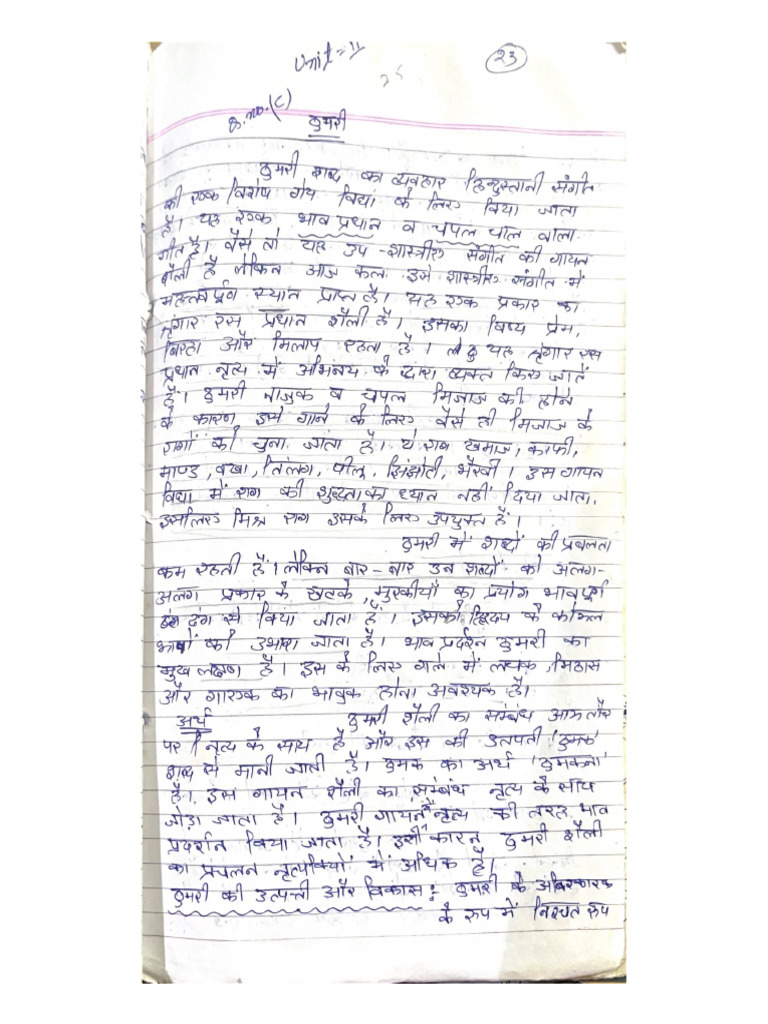 Unit = II
23
25
Q. no. (C)
ठुमरी
ठुमरी शब्द का व्यवहार हिन्दुस्तानी संगीत
की एक विशेष गेय विद्या के लिए किया जाता
है। यह एक भाव प्रधान व चपल चाल वाला
गीत है। वैसे तो यह उप-शास्त्रीय संगीत की गायन
शैली है लेकिन आज कल इसे शास्त्रीय संगीत में
महत्वपूर्ण स्थान प्राप्त है। यह एक प्रकार का
श्रृंगार रस प्रधान शैली है। इसका विष्य प्रेम,
बिरहा और मिलाप रहता है। यह श्रृंगार रस
प्रधान नृत्य में अभिनय के द्वारा व्यक्त किए जाते
है। ठुमरी नाजुक व चपल मिजाज की होने
के कारण इसे गाने के लिए वैसे ही मिजाज के
रागों को चुना जाता है। ये राग खमाज, काफी,
माण्ड, बरवा, तिलंग, पीलू, झिंझोटी, भैरवी। इस गायन
विद्या में राग की शुद्धता का ध्यान नहीं दिया जाता,
इसलिए मिश्र राग इसके लिए उपयुक्त हैं।
ठुमरी में शब्दों की प्रबलता
कम रहती है। लेकिन बार-बार उन शब्दों को अलग-
अलग प्रकार के खटके, मुरकीयाँ का प्रयोग भावपूर्ण
ढंग से किया जाता है। इसको हृिदय के कोमल
भावों को उभारा जाता है। भाव प्रदर्शन ठुमरी का
मुख लक्षण है। इस के लिए गले में लचक, मिठास
और गायक का भावुक होना अवश्यक है।
अर्थ ठुमरी शैली का सम्बंध आम तौर
पर नृत्य के साथ है और इस की उतपती 'ठुमक'
शब्द से मानी जाती है। ठुमक का अर्थ 'ठुमकना'
है। इस गायन शैली का सम्बंध नृत्य के साथ
जोड़ा जाता है। ठुमरी गायन में नृत्य की तरह भाव
प्रदर्शन किया जाता है। इसी कारन ठुमरी शैली
का प्रचलन नृत्यकियों में अधिक है।
ठुमरी की उत्पत्ती और विकास: ठुमरी के अविस्कारक
के रूप में निश्चत रूप